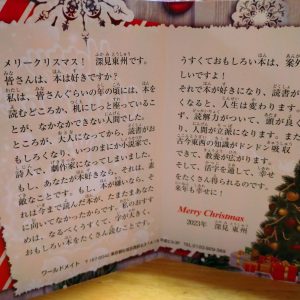 メリークリスマス！　深見東州です。
皆さんは、本は好きですか？
私は、皆さんぐらいの年の頃には、本を
読むどころか、机にじっと座っているこ
とが、なかなかできない人間でした。
ところが、大人になってから、読書がお
もしろくなり、いつのまにか小説家で、
詩人で、劇作家になってしまいました。
もし、あなたが本好きなら、それは、素
敵なことです。もし、本が嫌いなら、そ
れは今まで読んだ本が、たまたまあなた
に向いてなかったからです。私のおすす
めは、なるべくうすくて、字が大きく、
おもしろい本をたくさん読むことです。
ワールドメイト
うすくておもしろい本は、案外
しいですよ！
それで本が好きになり、読書が
なると、人生は変わります
ず、読解力がついて、頭が良く
り、人間が立派になります。また
古今東西の知識がドンドン吸収
できて、教養が広がります。
そして、活字を通して、幸せ
をたくさん得られるのです。
来年も幸せに！
Merry Christmas
2023年　深見東州